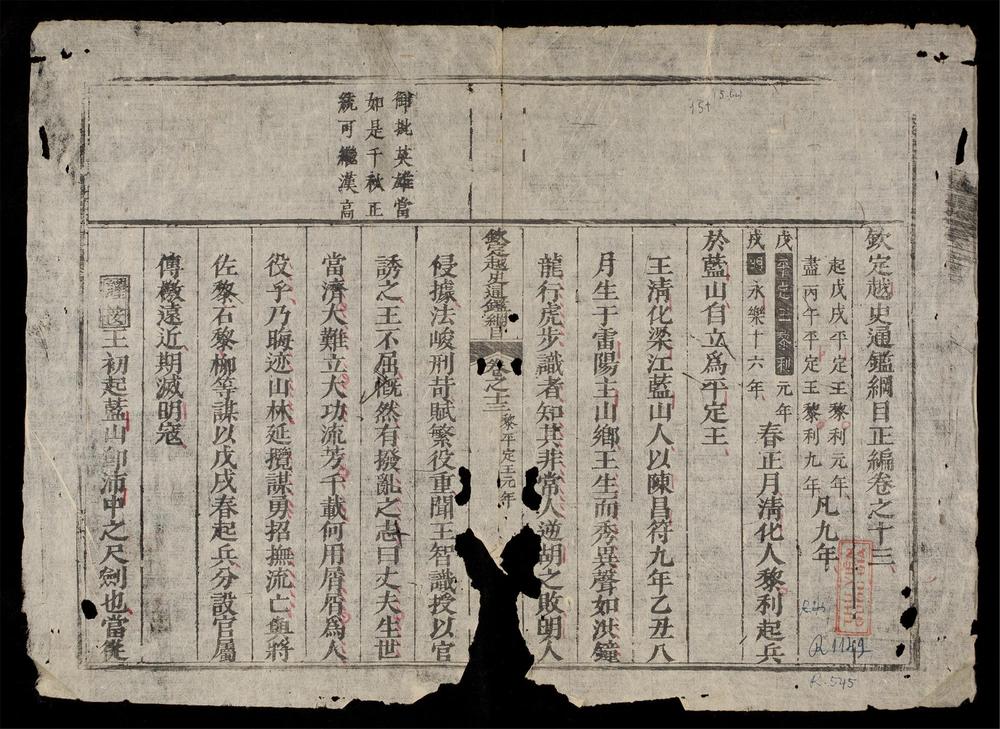 欽定越史通鑑綱目正編卷之十三
起戊戌平定王黎利元年
盡丙午平定王黎利九年
凡九年
戊
戌
平定王黎利元年
明永樂十六年
春正月清化人黎利起兵
於藍山自立爲平定王
王清化梁江藍山人以陳昌符九年乙丑八
月生于雷陽主山鄉王生而秀異聲如洪鐘
龍行虎步識者知其非常人逆胡之敗明人
欽定越史通鑑綱目
卷之十三
黎平定王元年
御批英雄當
如是千秋正
統可繼漢高
侵據法峻刑苛賦繁役重聞王智識授以官
誘之王不屈慨然有撥亂之志曰丈夫生世
當濟大難立大功流芳千載何用屑屑爲人
役乎乃晦迹山林延攬謀勇招撫流亡與將
佐黎石黎柳等謀以戊戌春起兵分設官屬
傳檄遠近期滅明寇
謹按王初起藍山卽沛中之尺劍也當從
151
R.1149
R.545